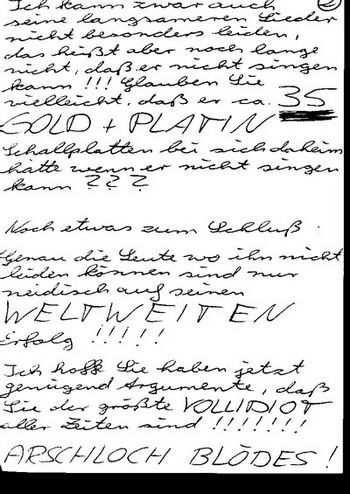 Ich kann zwar auch ②
seine langsameren Lieder
nicht besonders leiden,
das heißt aber noch lange
nicht, daß er nicht singen
kann !!! Glauben Sie
vielleicht, daß er ca. 35
GOLD + PLATIN
Schallplatten bei sich daheim
hätte wenn er nicht singen
kann ???
Noch etwas zum Schluß:
Genau die Leute wo ihn nicht
leiden können sind nur
neidisch auf seinen
WELTWEITEN
Erfolg !!!!!
Ich hoffe Sie haben jetzt
genügend Argumente, daß
Sie der größte VOLLIDIOT
aller Zeiten sind !!!!!!!
ARSCHLOCH BLÖDES !